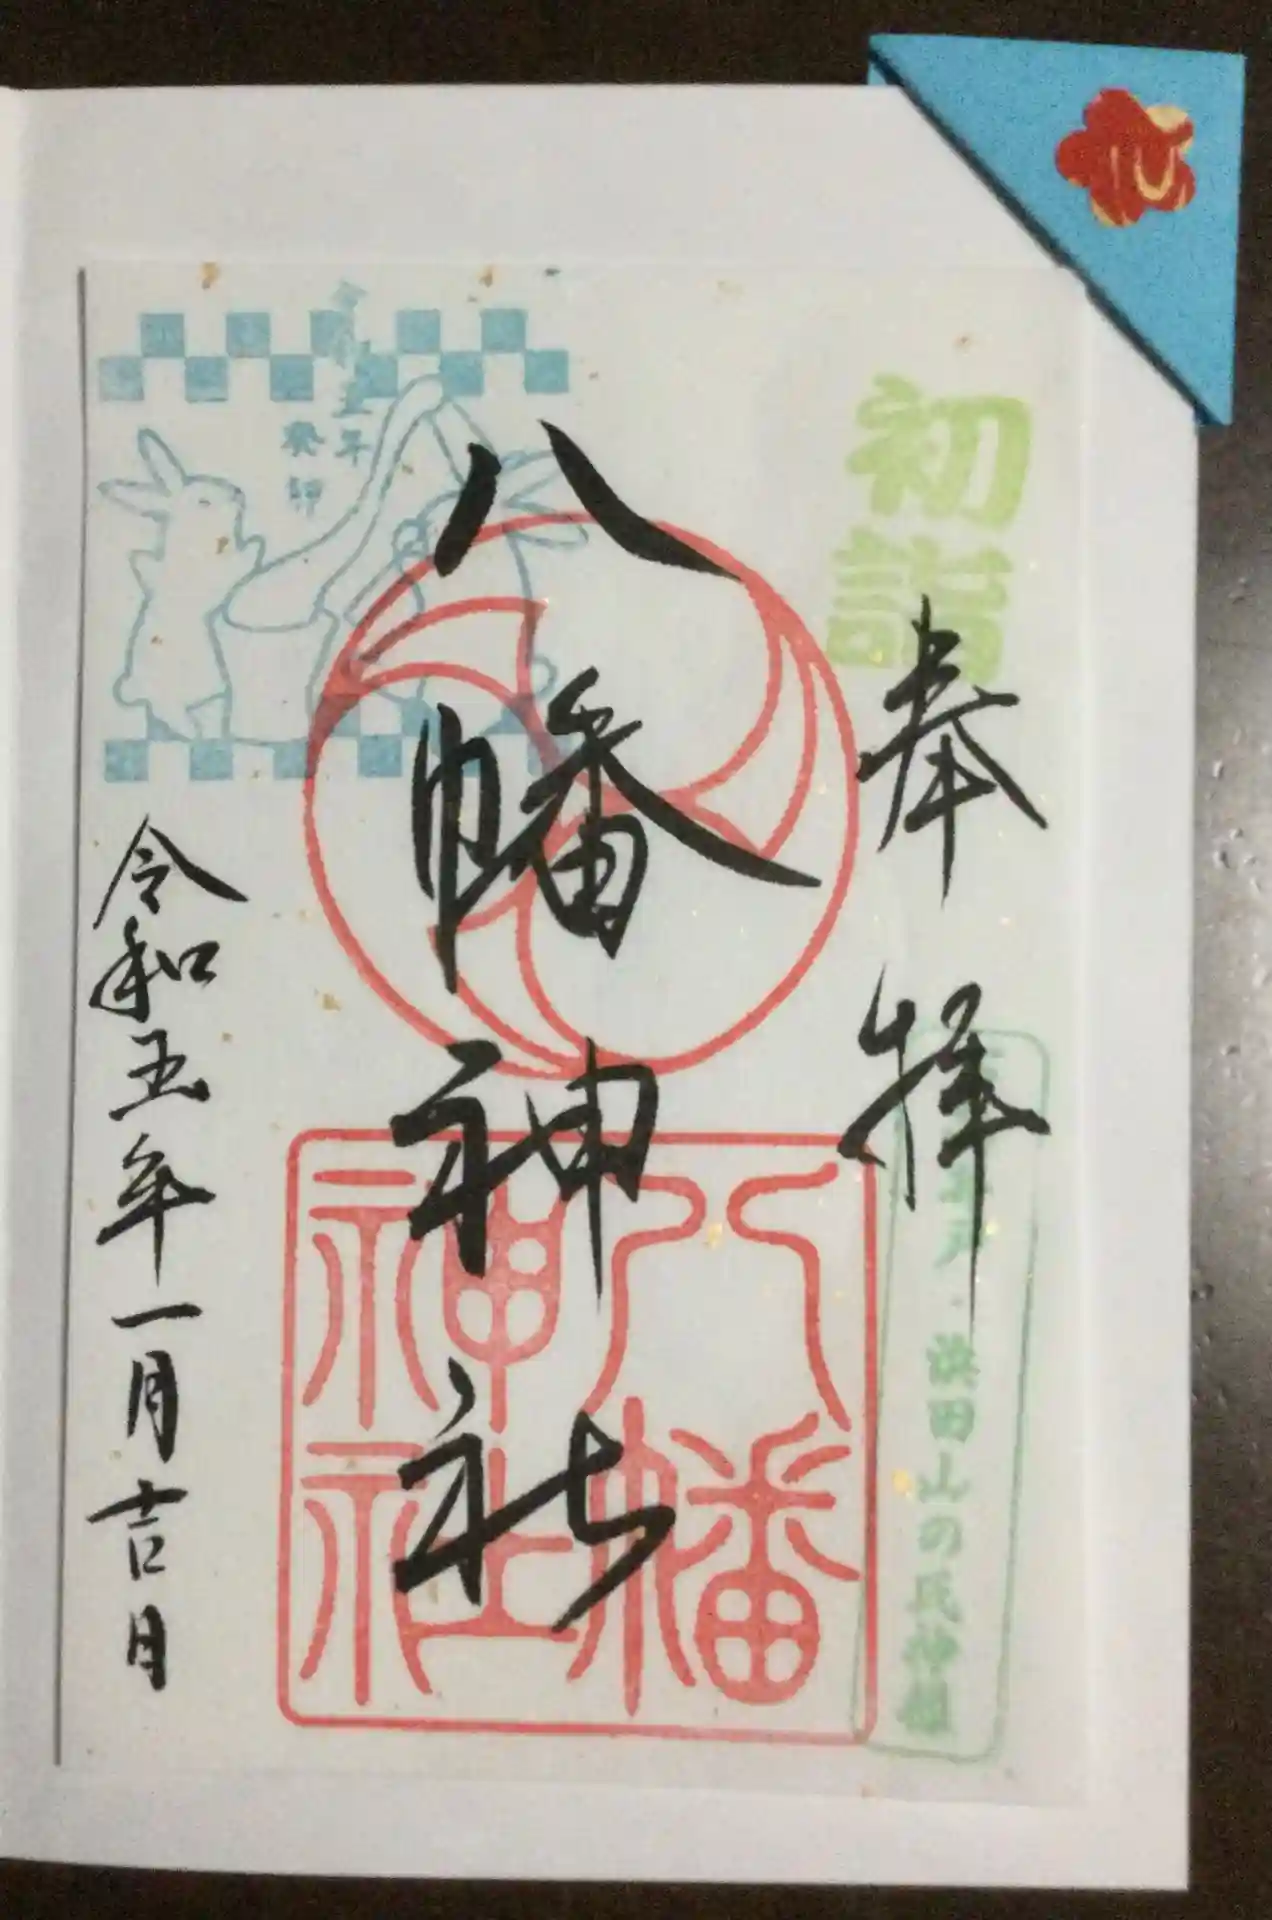 初詣
奉拝
浜田山の氏神様
八幡神社
八幡
神社
令和五年
癸卯
令和五年一月吉日